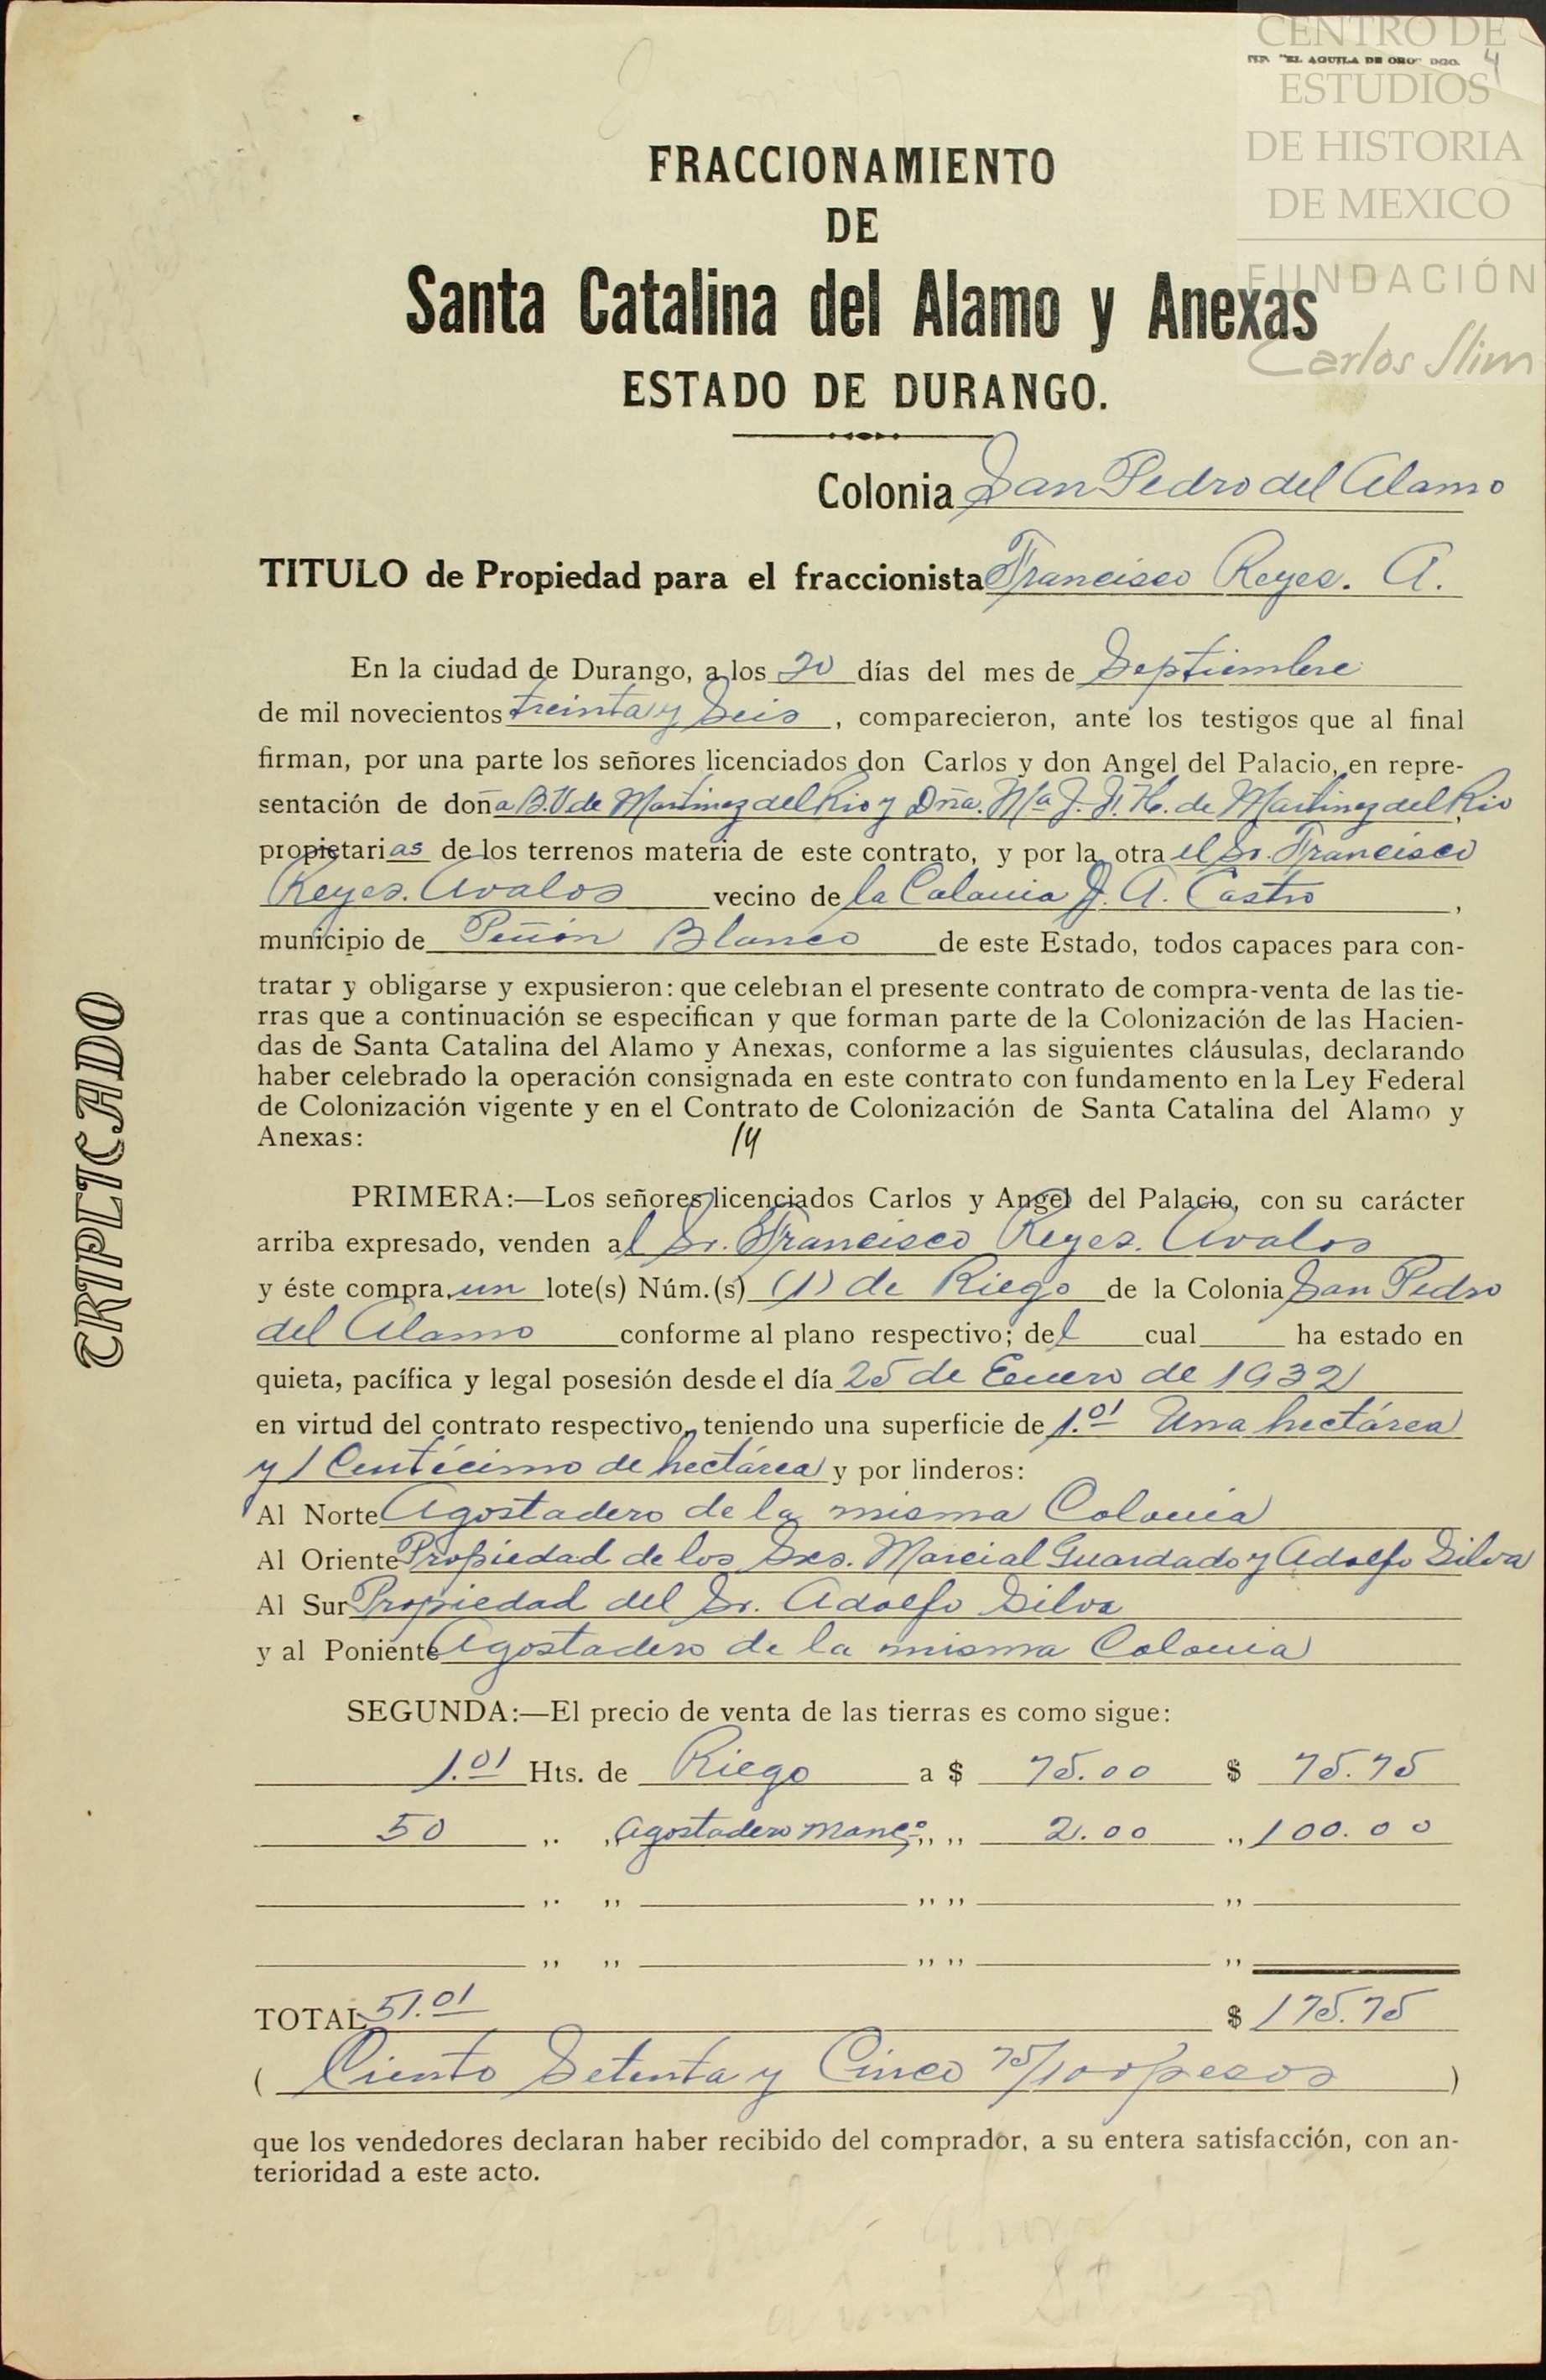 CENTRO DE
ESTUDIOS
DE HISTORIA
DE MEXICO
FUNDACIÓN
Carlos Slim
IMP. "EL AGUILA DE ORO" DGO.
4
FRACCIONAMIENTO
DE
Santa Catalina del Alamo y Anexas
ESTADO DE DURANGO.
Colonia San Pedro del Alamo
TITULO de Propiedad para el fraccionista Francisco Reyes. A.
En la ciudad de Durango, a los 20 días del mes de Septiembre
de mil novecientos treinta y Seis, comparecieron, ante los testigos que al final
firman, por una parte los señores licenciados don Carlos y don Angel del Palacio, en repre-
sentación de doña B. V. de Martinez del Rio y Dña. Ma J. de Martinez del Rio
propietarias de los terrenos materia de este contrato, y por la otra el Sr. Francisco
Reyes. Avalos vecino de la Colonia J. A. Castro,
municipio de Peñón Blanco de este Estado, todos capaces para con-
tratar y obligarse y expusieron: que celebran el presente contrato de compra-venta de las tie-
rras que a continuación se especifican y que forman parte de la Colonización de las Hacien-
das de Santa Catalina del Alamo y Anexas, conforme a las siguientes cláusulas, declarando
haber celebrado la operación consignada en este contrato con fundamento en la Ley Federal
de Colonización vigente y en el Contrato de Colonización de Santa Catalina del Alamo y
Anexas:
14
PRIMERA:—Los señores licenciados Carlos y Angel del Palacio, con su carácter
arriba expresado, venden al Sr. Francisco Reyes. Avalos
y éste compra, un lote(s) Núm.(s) (1) de Riego de la Colonia San Pedro
del Alamo conforme al plano respectivo; del cual ha estado en
quieta, pacífica y legal posesión desde el día 25 de Enero de 1932
en virtud del contrato respectivo, teniendo una superficie de 1.01 Una hectárea
y 1 Centécimo de hectárea y por linderos:
Al Norte Agostadero de la misma Colonia
Al Oriente Propiedad de los Sres. Marcial Guardado y Adolfo Silva
Al Sur Propiedad del Sr. Adolfo Silva
y al Poniente Agostadero de la misma Colonia
SEGUNDA:—El precio de venta de las tierras es como sigue:
1.01 Hts. de Riego a $ 75.00 $ 75.75
50 ,, ,, Agostadero Manc.o ,, ,, 2.00 ,, 100.00
,, ,, ,, ,, ,,
,, ,, ,, ,, ,,
TOTAL 51.01 $ 175.75
( Ciento Setenta y Cinco 75/100 pesos )
que los vendedores declaran haber recibido del comprador, a su entera satisfacción, con an-
terioridad a este acto.
TRIPLICADO